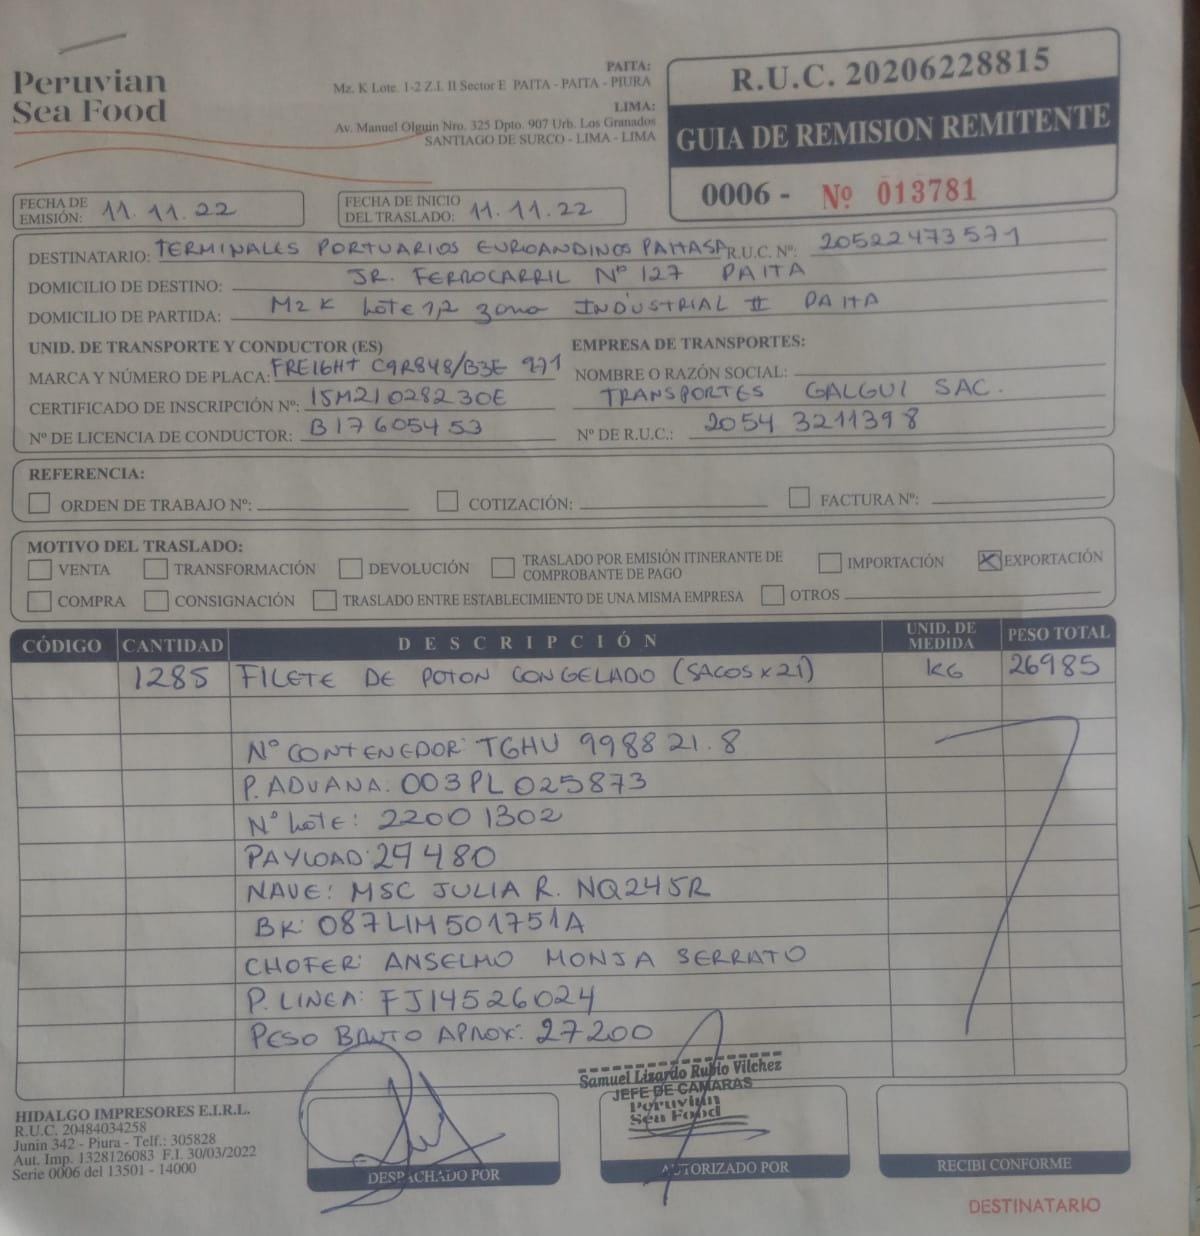 Peruvian
Sea Food
PAITA:
Mz. K Lote. 1-2 Z.I. II Sector E PAITA - PAITA - PIURA
LIMA:
Av. Manuel Olguin Nro. 325 Dpto. 907 Urb. Los Granados
SANTIAGO DE SURCO - LIMA - LIMA
R.U.C. 20206228815
GUIA DE REMISION REMITENTE
0006 - Nº 013781
FECHA DE EMISIÓN: 11.11.22
FECHA DE INICIO DEL TRASLADO: 11.11.22
DESTINATARIO: TERMINALES PORTUARIOS EUROANDINOS PAITASA R.U.C. Nº: 20522473571
DOMICILIO DE DESTINO: JR. FERROCARRIL Nº 127 PAITA
DOMICILIO DE PARTIDA: MZ K Lote 1,2 zona INDUSTRIAL II PAITA
UNID. DE TRANSPORTE Y CONDUCTOR (ES)
MARCA Y NÚMERO DE PLACA: FREIGHT C9R848/B3E 971
CERTIFICADO DE INSCRIPCIÓN Nº: 15M21028230E
Nº DE LICENCIA DE CONDUCTOR: B17605453
EMPRESA DE TRANSPORTES:
NOMBRE O RAZÓN SOCIAL:
TRANSPORTES GALGUI SAC.
Nº DE R.U.C.: 20543211398
REFERENCIA:
ORDEN DE TRABAJO Nº: COTIZACIÓN: FACTURA Nº:
MOTIVO DEL TRASLADO:
VENTA TRANSFORMACIÓN DEVOLUCIÓN TRASLADO POR EMISIÓN ITINERANTE DE COMPROBANTE DE PAGO IMPORTACIÓN X EXPORTACIÓN
COMPRA CONSIGNACIÓN TRASLADO ENTRE ESTABLECIMIENTO DE UNA MISMA EMPRESA OTROS
CÓDIGO CANTIDAD DESCRIPCIÓN UNID. DE MEDIDA PESO TOTAL
1285 FILETE DE POTON CONGELADO (SACOS x 21) KG 26985
Nº CONTENEDOR: TGHU 998821.8
P. ADUANA: 003PL025873
Nº Lote: 22001302
PAYLOAD: 29480
NAVE: MSC JULIA R. NQ245R
BK: 087LIM501751A
CHOFER: ANSELMO MONJA SERRATO
P. LINEA: FJ14526024
PESO BRUTO APROX: 27200
Samuel Lizardo Rubio Vilchez
JEFE DE CAMARAS
Peruvian
Sea Food
HIDALGO IMPRESORES E.I.R.L.
R.U.C. 20484034258
Junin 342 - Piura - Telf.: 305828
Aut. Imp. 1328126083 F.I. 30/03/2022
Serie 0006 del 13501 - 14000
DESPACHADO POR
AUTORIZADO POR
RECIBI CONFORME
DESTINATARIO